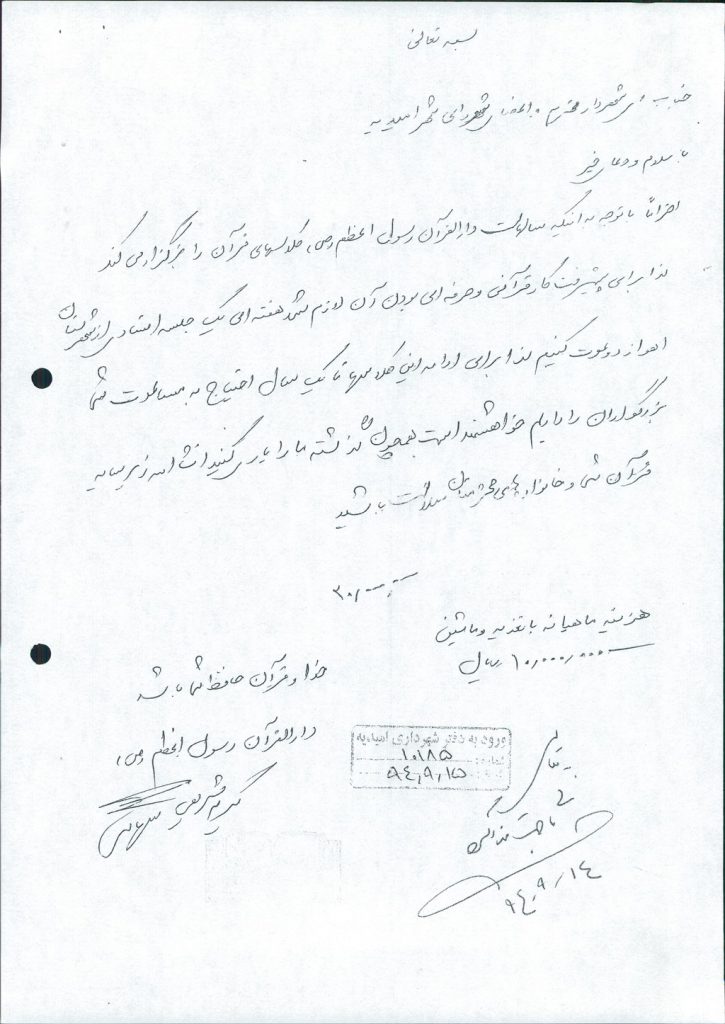 بسمه تعالی
جناب شهردار محترم و اعضای شورای شهر امیدیه
با سلام و دعای خیر
احتراماً با توجه به اینکه سالهاست دارالقرآن رسول اعظم (ص) کلاسهای قرآن را برگزار می کند
لذا برای پیشرفت کار قرآنی و حرفه ای بودن آن لازم شد هفته ای یک جلسه استادی از شهرستان
اهواز دعوت کنیم لذا برای ادامه این کلاسها تا یک سال احتیاج به مساعدت شما
بزرگواران را داریم خواهشمند است همچون گذشته ما را یاری کنید انشاءاله زیر سایه
قرآن شما و خانواده های محترمتان سلامت باشید
هزینه ماهیانه با تغذیه و ماشین
۱۰,۰۰۰,۰۰۰ ریال
خدا و قرآن حافظ شما باشد
دارالقرآن رسول اعظم (ص)
ورود به دفتر شهرداری امیدیه
شماره: ۱۰۱۸۵
۹۴,۹,۱۵
۹۴,۹/۱۴